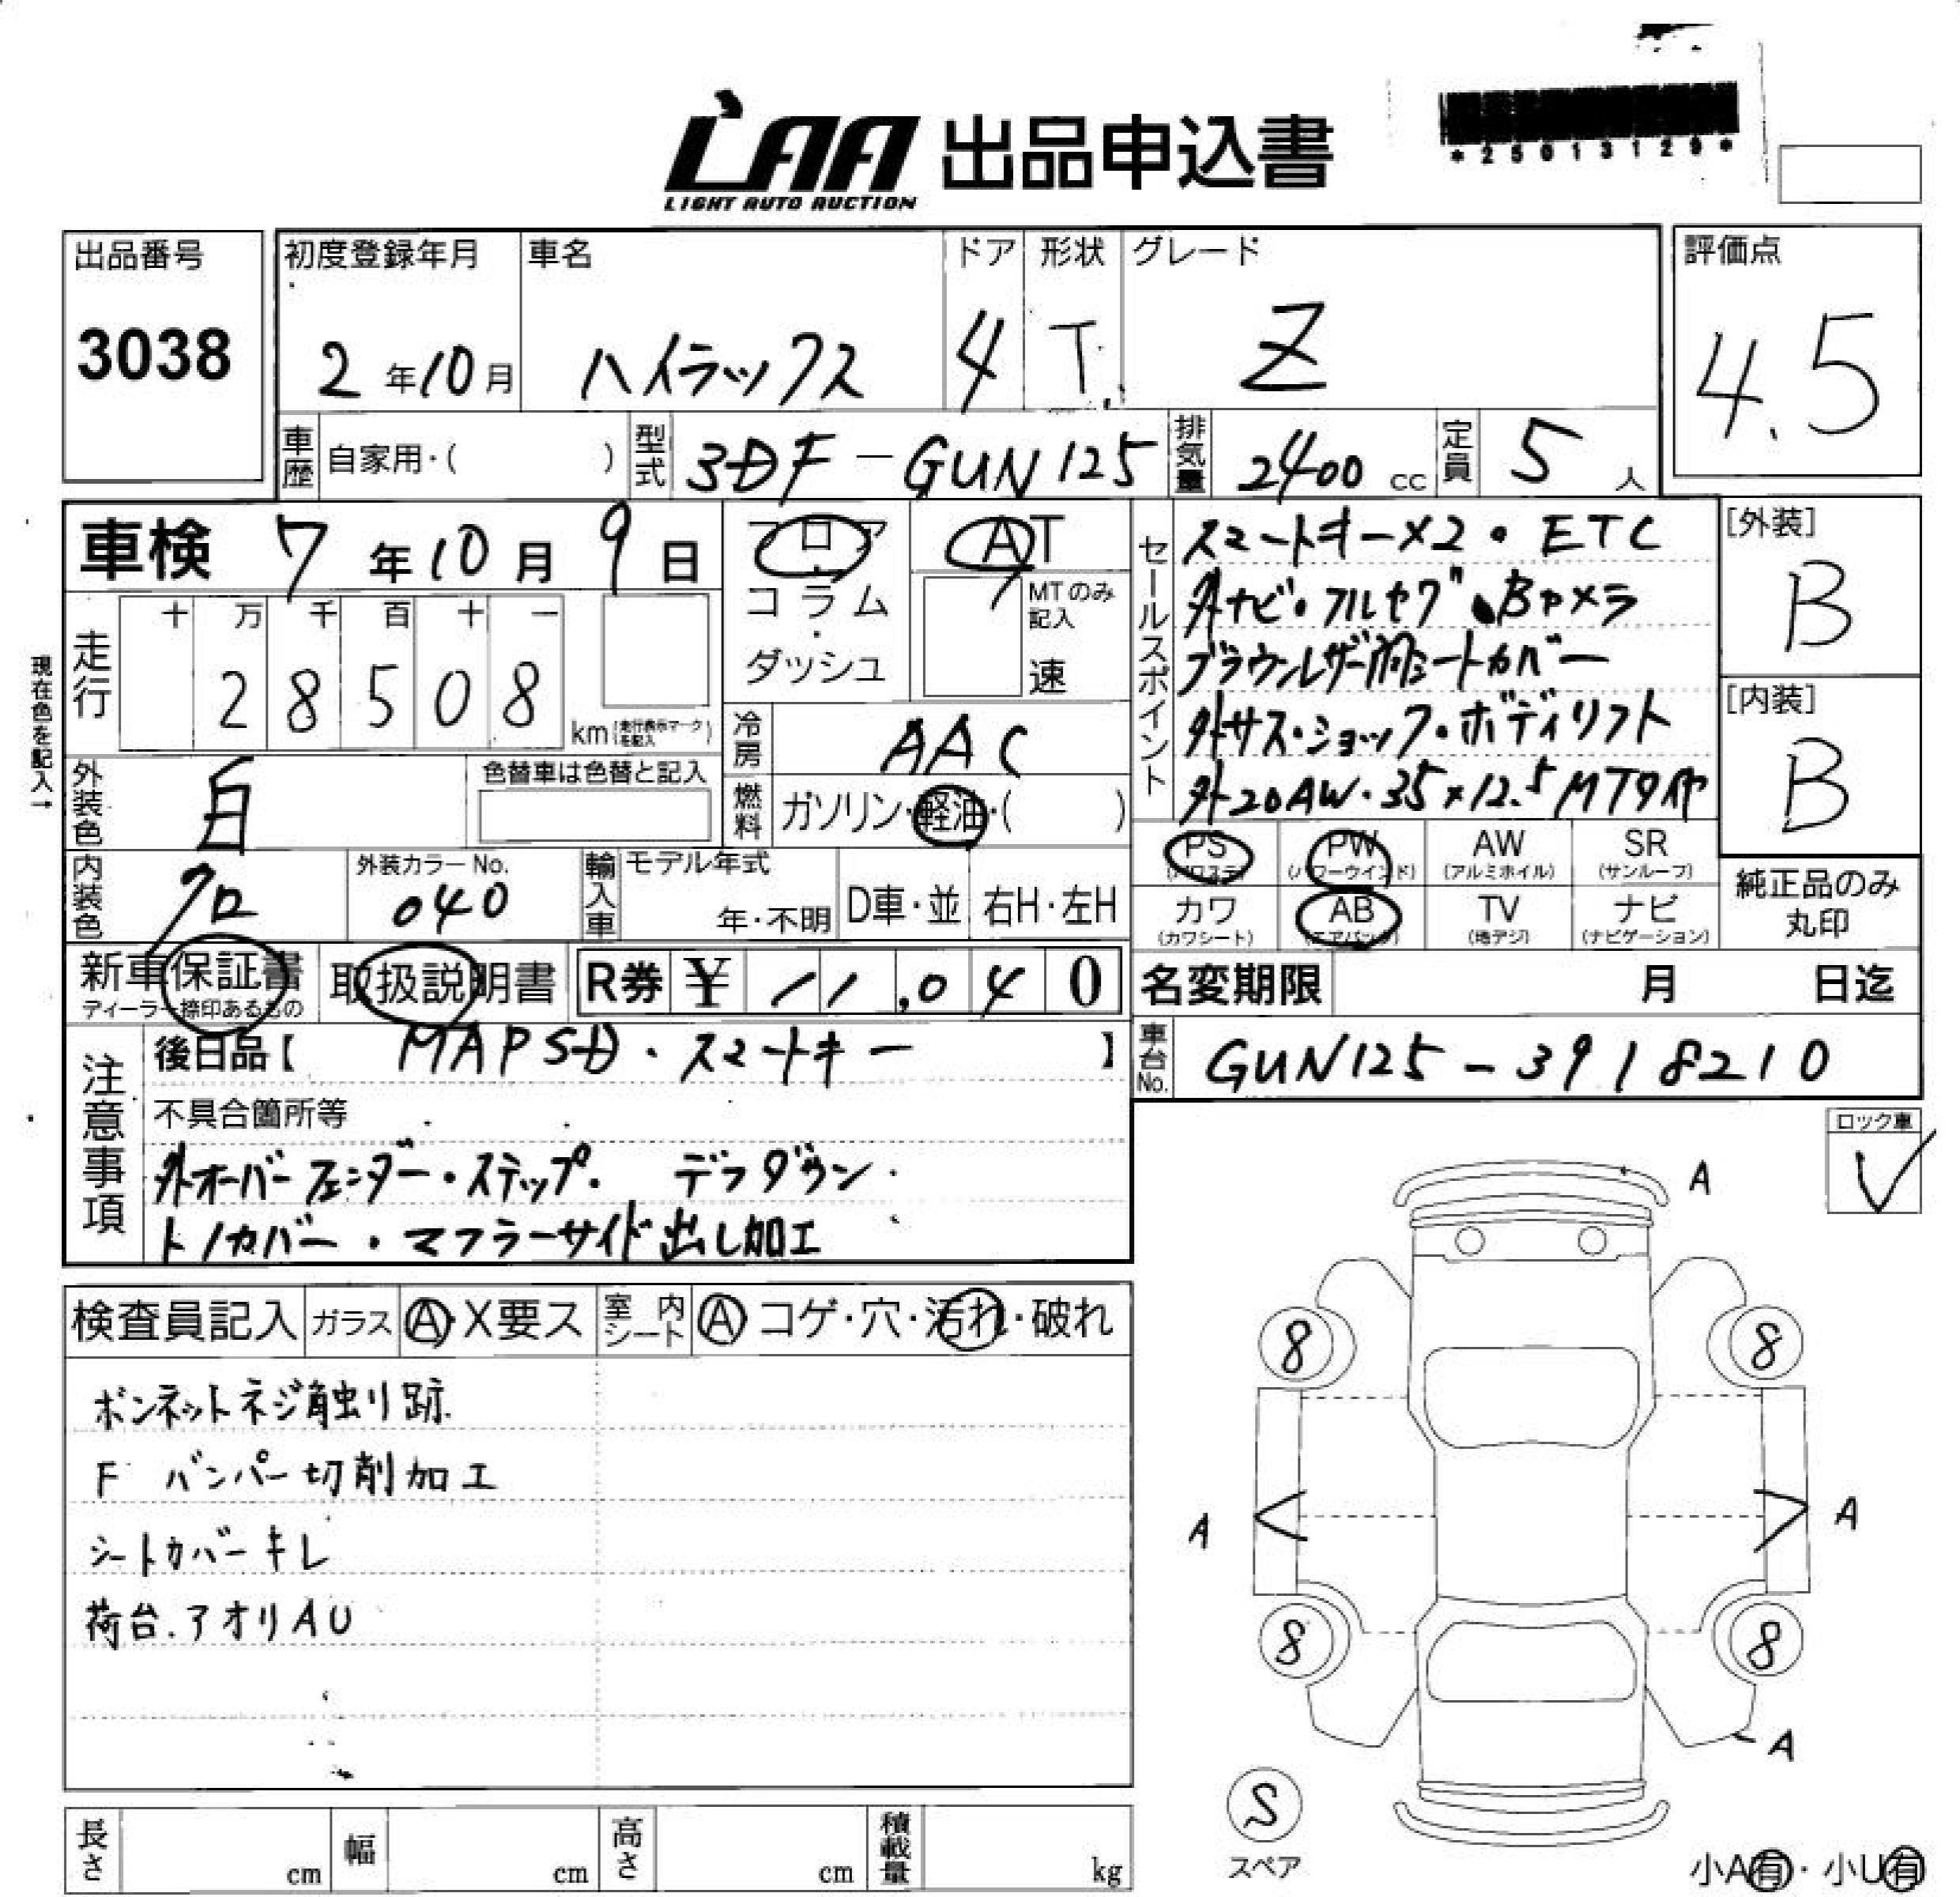 LAA 出品申込書
LIGHT AUTO AUCTION
*25013129*
出品番号
3038
初度登録年月
2年10月
車名
ハイラックス
ドア
4
形状
T
グレード
Z
評価点
4.5
車歴
自家用・( )
型式
3DF-GUN125
排気量
2400 cc
定員
5人
車検 7年10月9日
フロア・コラム・ダッシュ
AT
MTのみ記入
速
セールスポイント
スマートキー×2・ETC
外ナビ・フルセグ・Bカメラ
ブラウンレザー調シートカバー
外サス・ショック・ボディリフト
外20AW・35×12.5 MTタイヤ
[外装]
B
[内装]
B
現在色を記入→
走行
十 万 千 百 十 一
28508
km(走行表示マークを記入)
冷房
AAC
外装色
白
色替車は色替と記入
燃料
ガソリン・軽油・( )
内装色
クロ
外装カラーNo.
040
輸入車
モデル年式
年・不明
D車・並
右H・左H
PS (パワステ)
PW (パワーウインド)
AW (アルミホイル)
SR (サンルーフ)
カワ (カワシート)
AB (エアバック)
TV (地デジ)
ナビ (ナビゲーション)
純正品のみ丸印
新車保証書
ディーラー捺印あるもの
取扱説明書
R券 ¥11,040
名変期限 月 日迄
注意事項
後日品【 MAPSD・スマートキー 】
車台No.
GUN125-3918210
不具合箇所等
外オーバーフェンダー・ステップ・ デフダウン
トノカバー・マフラーサイド出し加工
ロック車
検査員記入
ガラス
A・X要ス
室内シート
A コゲ・穴・汚れ・破れ
ボンネットネジ触り跡
F バンパー切削加工
シートカバーキレ
荷台.アオリAU
A
8
8
A
A
8
8
A
S
スペア
長さ cm
幅 cm
高さ cm
積載量 kg
小A有・小U有